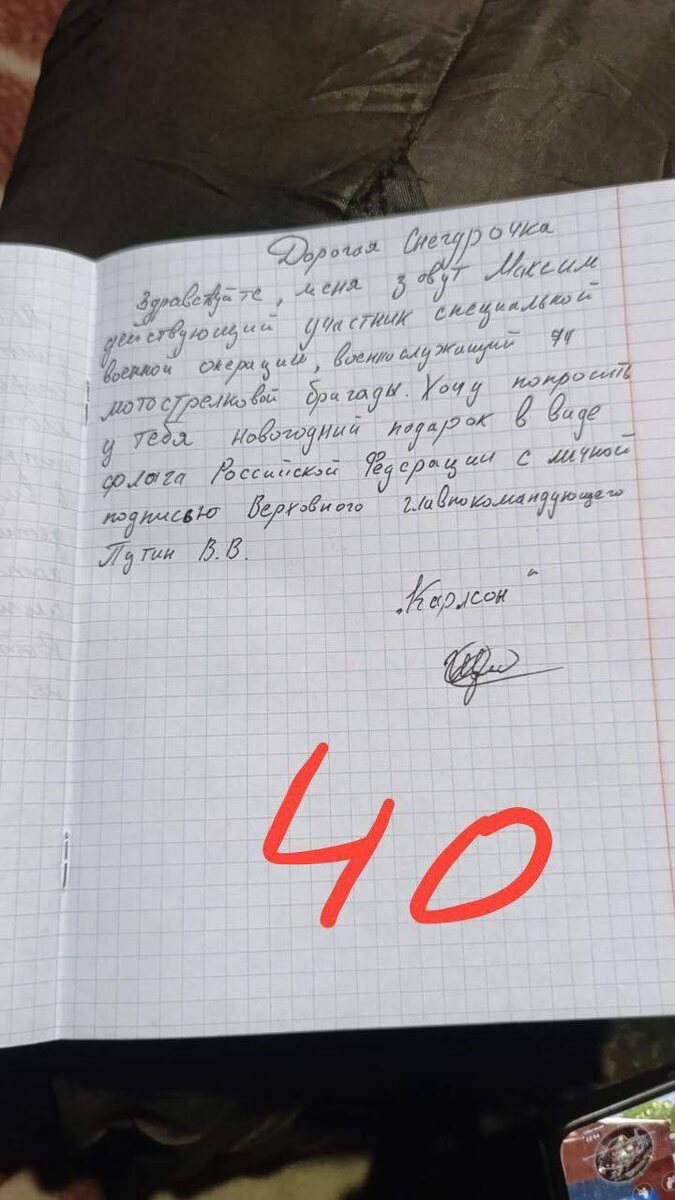 Дорогая Снегурочка
Здравствуйте, меня зовут Максим
действующий участник специальной
военной операции, военнослужащий 74
мотострелковой бригады. Хочу попросить
у тебя новогодний подарок в виде
флага Российской Федерации с личной
подписью Верховного главнокомандующего
Путин В.В.
"Карлсон"
40